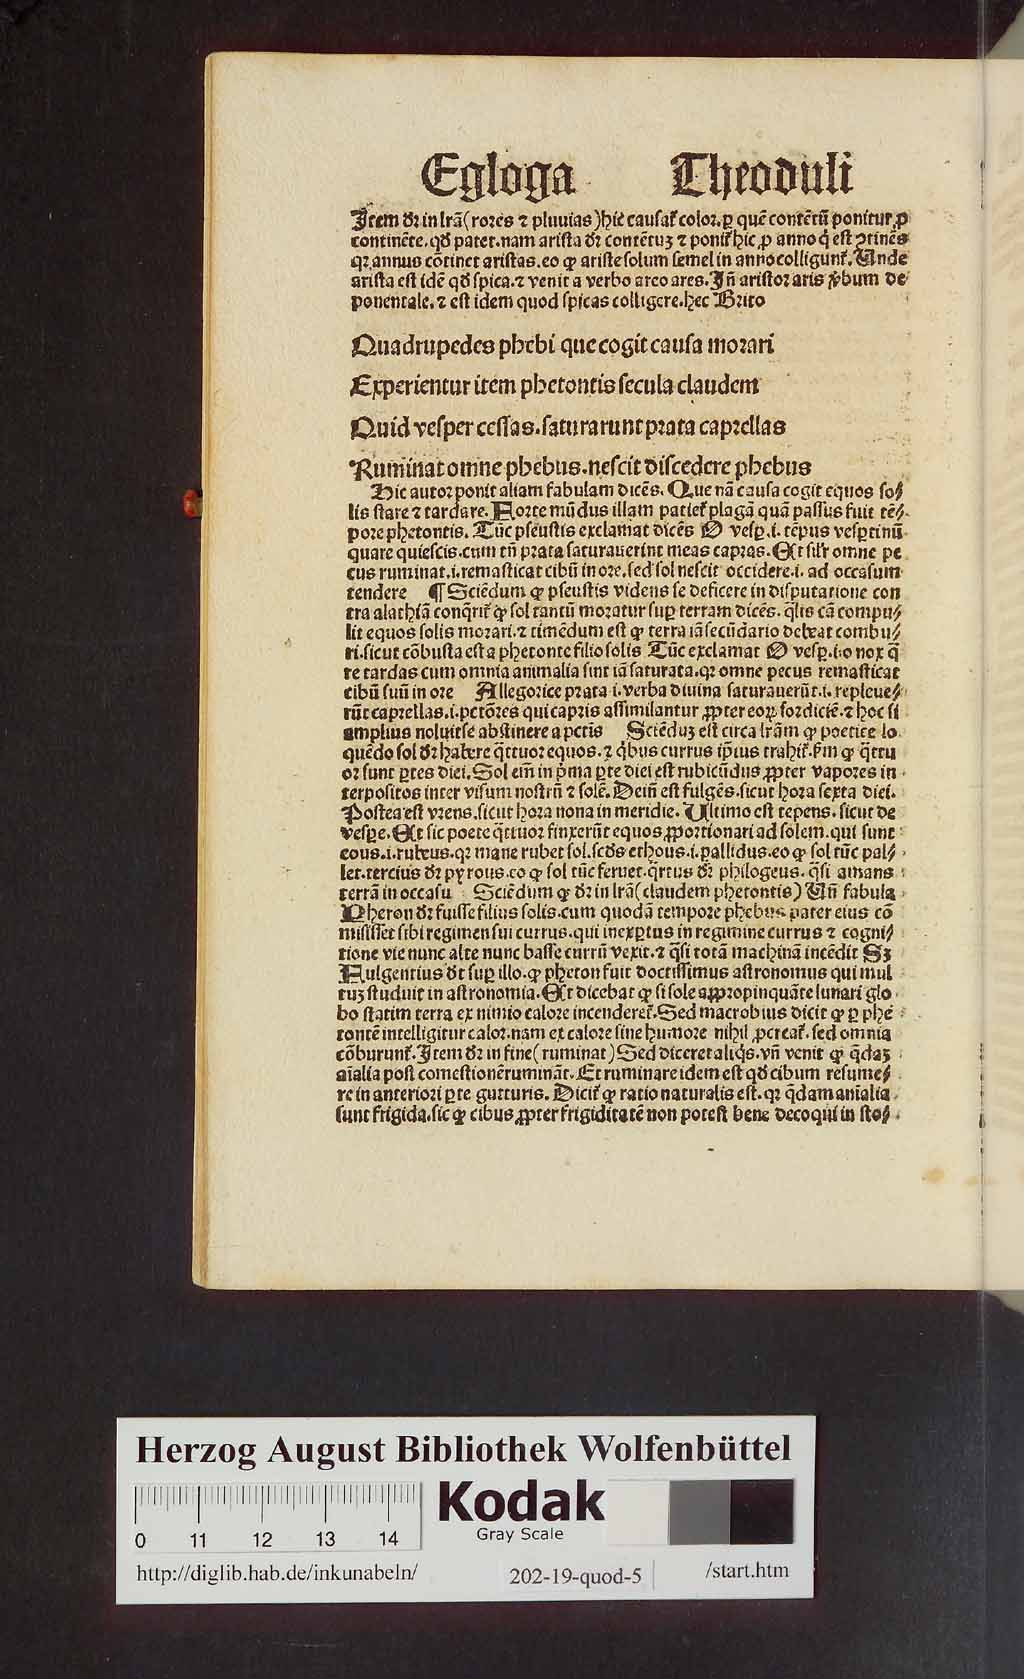 Egloga Theoduli
Item dr̄ in lr̄a (rores ⁊ pluuias) hic causat᷑ color. ꝑ quē contētū ponitur ꝓ
continēte. qd̄ patet. nam arista dr̄ contētuꝫ ⁊ ponit᷑ hic ꝓ anno q̇ est ꝯtinēs
qꝛ annus cōtinet aristas. eo ꝙ ariste solum semel in anno colligunt᷑. Unde
arista est idē qd̄ spica. ⁊ venit a verbo areo ares. Iñ aristor aris v̓bum de
ponentale. ⁊ est idem quod spicas colligere. hec Brito
Quadrupedes phebi que cogit causa morari
Experientur item phetontis secula cladem
Quid vesper cessas. saturarunt prata capellas
Ruminat omne phebus. nescit discedere phebus
Hic autor ponit aliam fabulam dicēs. Que nā causa cogit equos so⸗
lis stare ⁊ tardare. Forte mūdus illam patiet᷑ plagā quā passus fuit tē⸗
pore phetontis. Tūc pseustis exclamat dicēs O vesꝑ .i. tēpus vesꝑtinū
quare quiescis. cum tñ prata saturauerint meas capras. Et sil̓r omne pe
cus ruminat .i. remasticat cibū in ore. sed sol nescit occidere .i. ad occasum
tendere ¶ Sciēdum ꝙ pseustis videns se deficere in disputatione con
tra alathiā conq̄rit᷑ ꝙ sol tantū moratur suꝑ terram dicēs. q̄lis cā compu⸗
lit equos solis morari. ⁊ timēdum est ꝙ terra iā secūdario debeat combu⸗
ri. sicut cōbusta est a phetonte filio solis Tūc exclamat O vesꝑ .i. o nox q̄
re tardas cum omnia animalia sint iā saturata. qꝛ omne pecus remasticat
cibū suū in ore Allegorice prata .i. verba diuina saturauerūt .i. repleue⸗
rūt capellas .i. pctōres qui capris assimilantur ꝓpter eoꝝ sordiciē. ⁊ hoc si
amplius noluisse abstinere a pctis Sciēduꝫ est circa lr̄am ꝙ poetice lo
quēdo sol dr̄ habere q̄ttuor equos. ⁊ q̇bus currus ip̄ius trahit᷑. ẜm ꝙ q̄ttu
or sunt ꝑtes diei. Sol em̄ in p̓ma ꝑte diei est rubicūdus ꝓpter vapores in
terpositos inter visum nostrū ⁊ solē. Dein̄ est fulgēs. sicut hora sexta diei.
Postea est vrens. sicut hora nona in meridie. Ultimo est tepens. sicut de
vesꝑe. Et sic poete q̄ttuor finxerūt equos ꝓportionari ad solem. qui sunt
eous .i. rubeus. qꝛ mane rubet sol. scd̄s ethous .i. pallidus. eo ꝙ sol tūc pal⸗
let. tercius dr̄ pyrous. eo ꝙ sol tūc feruet. q̄rtus dr̄ philogeus. q̄si amans
terrā in occasu Sciēdum ꝙ dr̄ in lr̄a (claudem phetontis) Uñ fabula
Pheton dr̄ fuisse filius solis. cum quodā tempore phebus pater eius cō
misisset sibi regimen sui currus. qui inexꝑtus in regimine currus ⁊ cogni⸗
tione vie nunc alte nunc basse currū vexit. ⁊ q̄si totā machinā incēdit Sꝫ
Fulgentius dt̄ suꝑ illo. ꝙ pheton fuit doctissimus astronomus qui mul
tuꝫ studuit in astronomia. Et dicebat ꝙ si sole aꝓpropinquāte lunari glo
bo statim terra ex nimio calore incenderet᷑. Sed macrobius dicit ꝙ ꝑ phe
tontē intelligitur calor. nam ex calore sine humore nihil ꝓcreat᷑. sed omnia
cōburunt᷑. Item dr̄ in fine (ruminat) Sed diceret aliq̇s. vñ venit ꝙ q̄daꝫ
aīalia post comestionē rumināt. Et ruminare idem est qd̄ cibum resume⸗
re in anteriori ꝑte gutturis. Dicit᷑ ꝙ ratio naturalis est. qꝛ q̄dam anīalia
sunt frigida. sic ꝙ cibus ꝓpter frigiditatē non potest bene decoqui in sto⸗
Herzog August Bibliothek Wolfenbüttel
0 11 12 13 14
Kodak
Gray Scale
http://diglib.hab.de/inkunabeln/ 202-19-quod-5 /start.htm